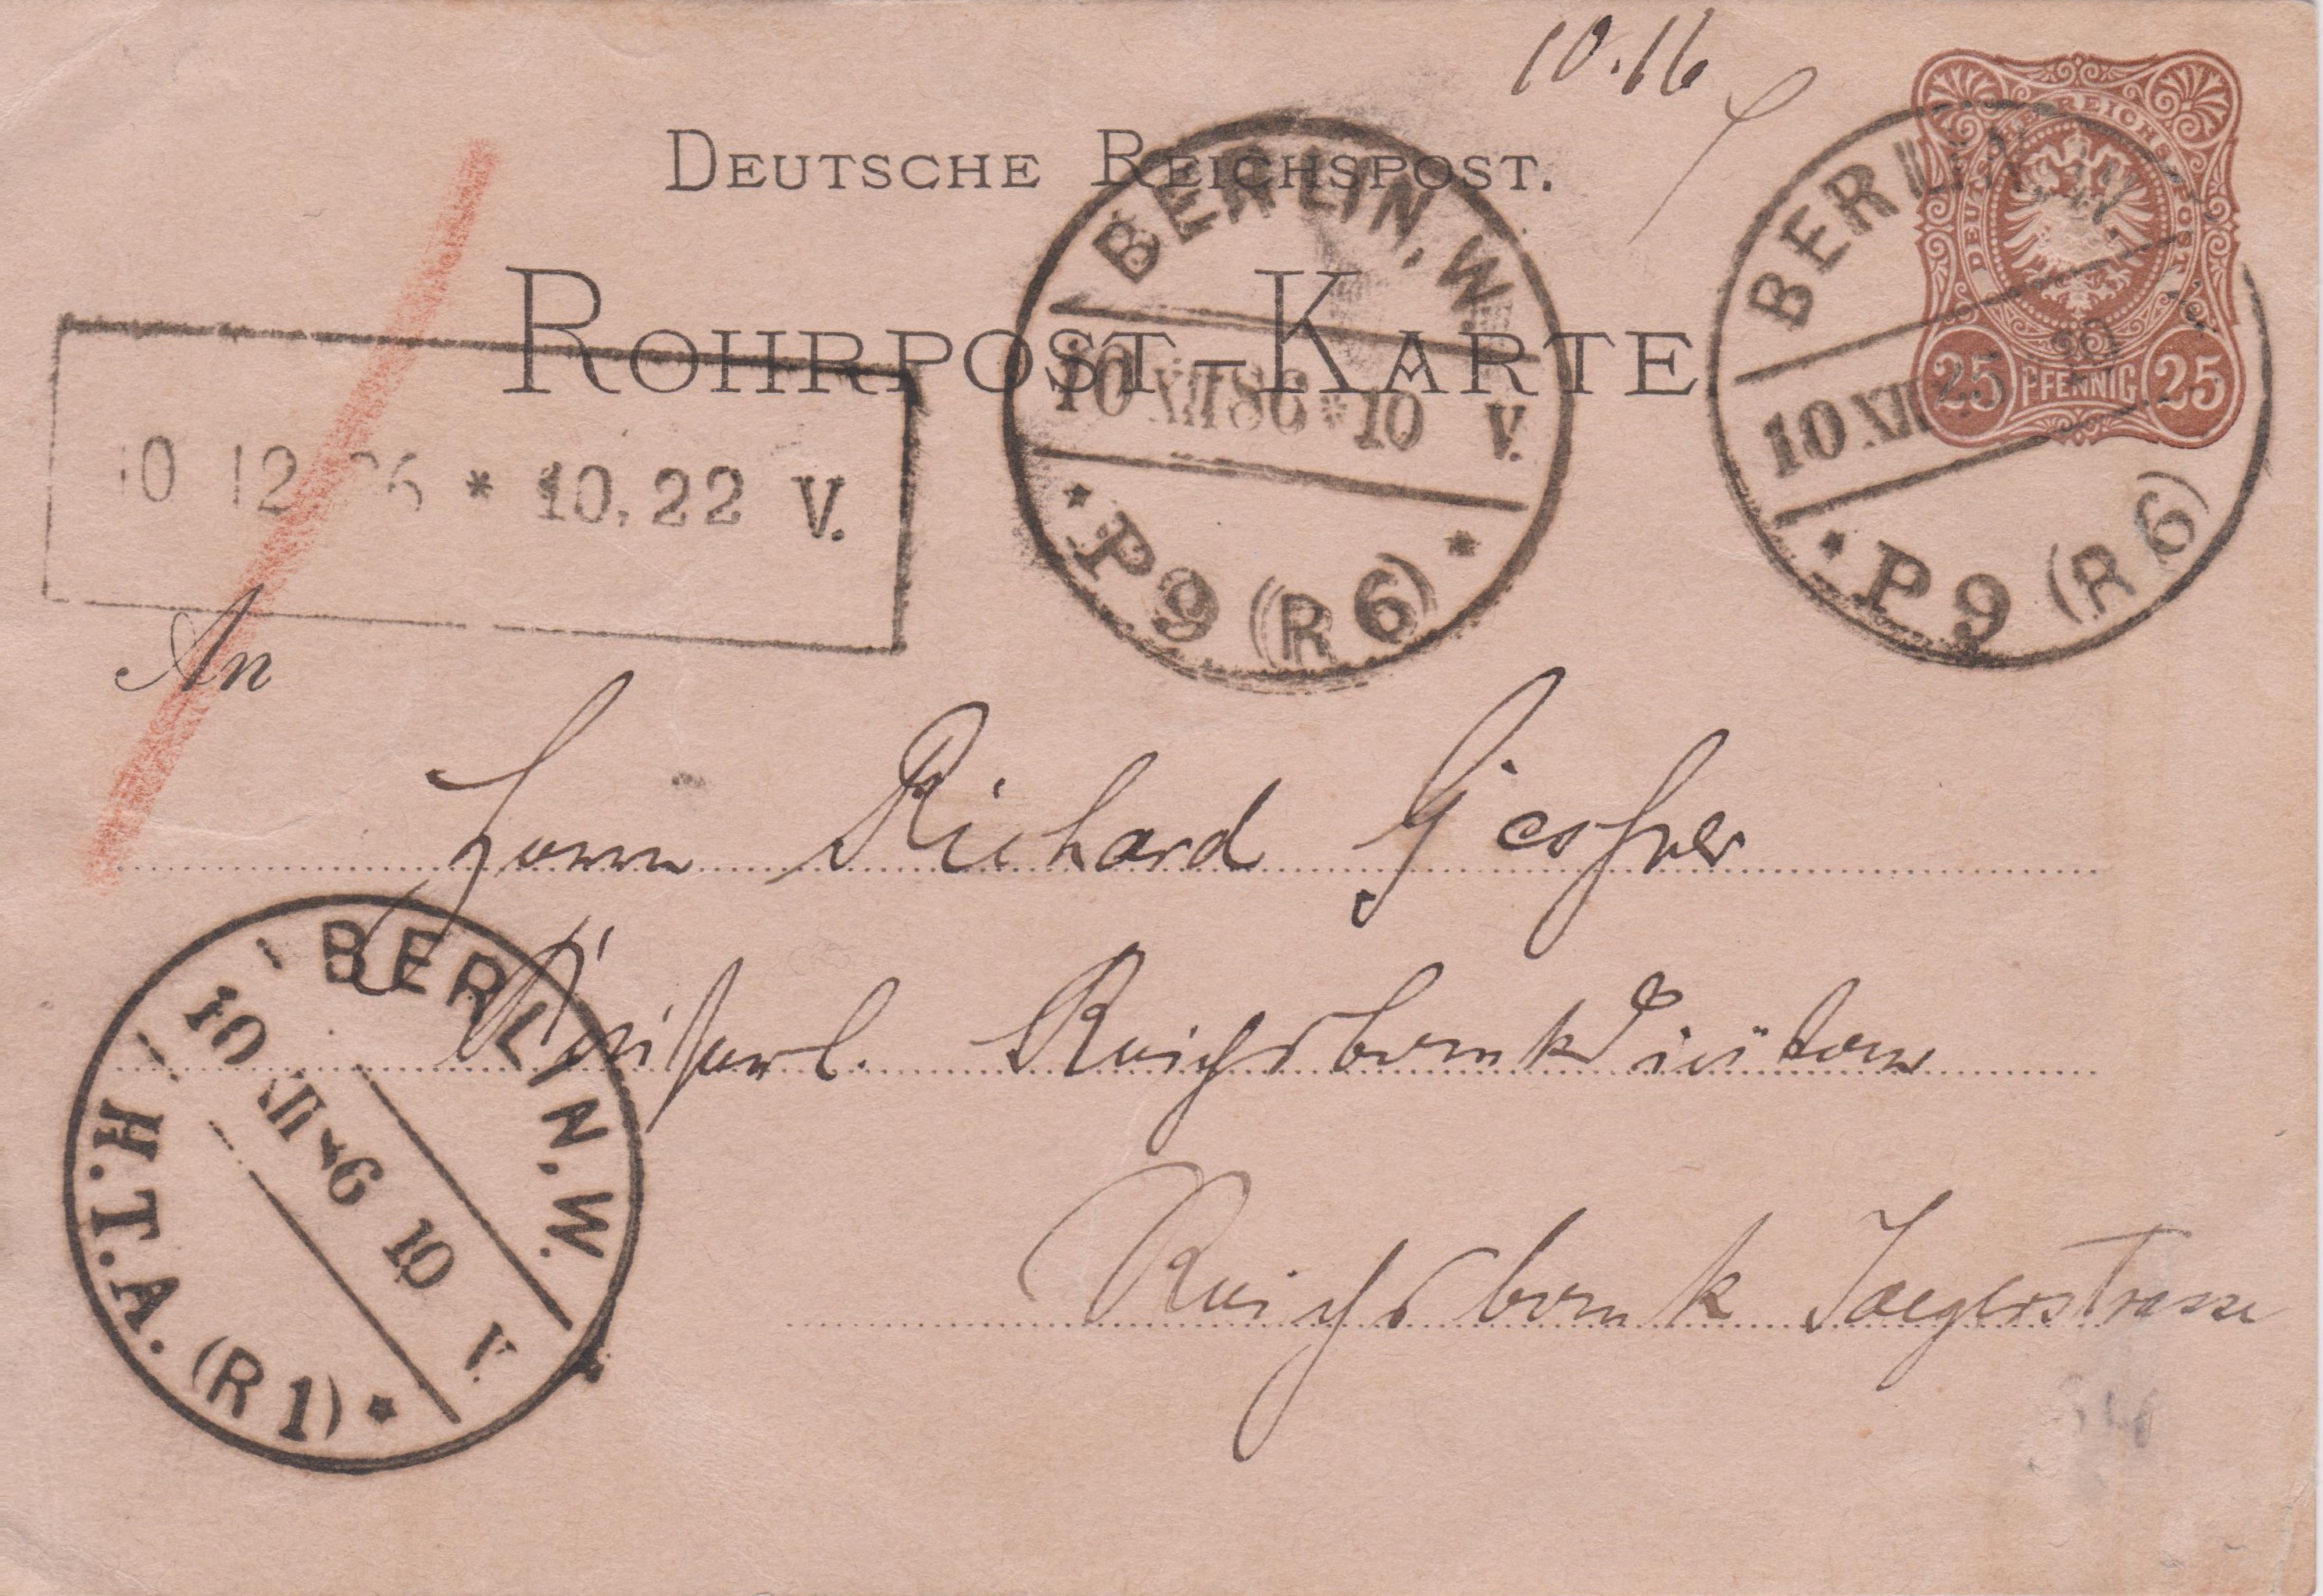 10.16
DEUTSCHE REICHSPOST.
ROHRPOST-KARTE
DEUTSCHE REICHSPOST
25 PFENNIG 25
BERLIN, W.
10 XII 86 * 10 V.
* P 9 (R 6) *
BERLIN, W.
10 XII
* P 9 (R 6)
10 12 86 * 10.22 V.
An
Herrn Richard
Kaiserl. Reichsbank
Reichsbank Jaegerstrasse
BERLIN, W.
10 XII 86 10 V.
H.T.A. (R 1) *